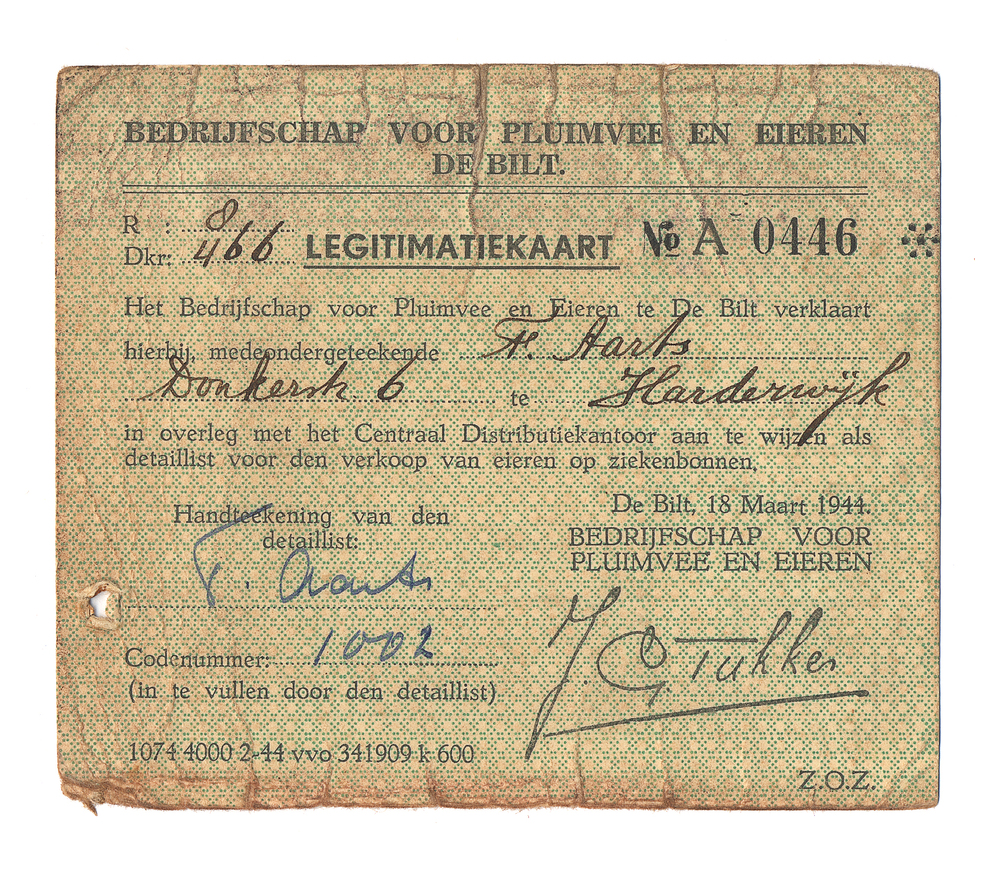 BEDRIJFSCHAP VOOR PLUIMVEE EN EIEREN
DE BILT.
R : 8
Dkr: 466 LEGITIMATIEKAART № A 0446
Het Bedrijfschap voor Pluimvee en Eieren te De Bilt verklaart
hierbij, medeondergeteekende F. Aarts
Donkerstr 6 te Harderwijk
in overleg met het Centraal Distributiekantoor aan te wijzen als
detaillist voor den verkoop van eieren op ziekenbonnen.
Handteekening van den
detaillist:
F. Aarts
Codenummer: 1002
(in te vullen door den detaillist)
1074 4000 2-44 vvo 341909 k 600
De Bilt, 18 Maart 1944.
BEDRIJFSCHAP VOOR
PLUIMVEE EN EIEREN
J. G. Tukker
Z.O.Z.